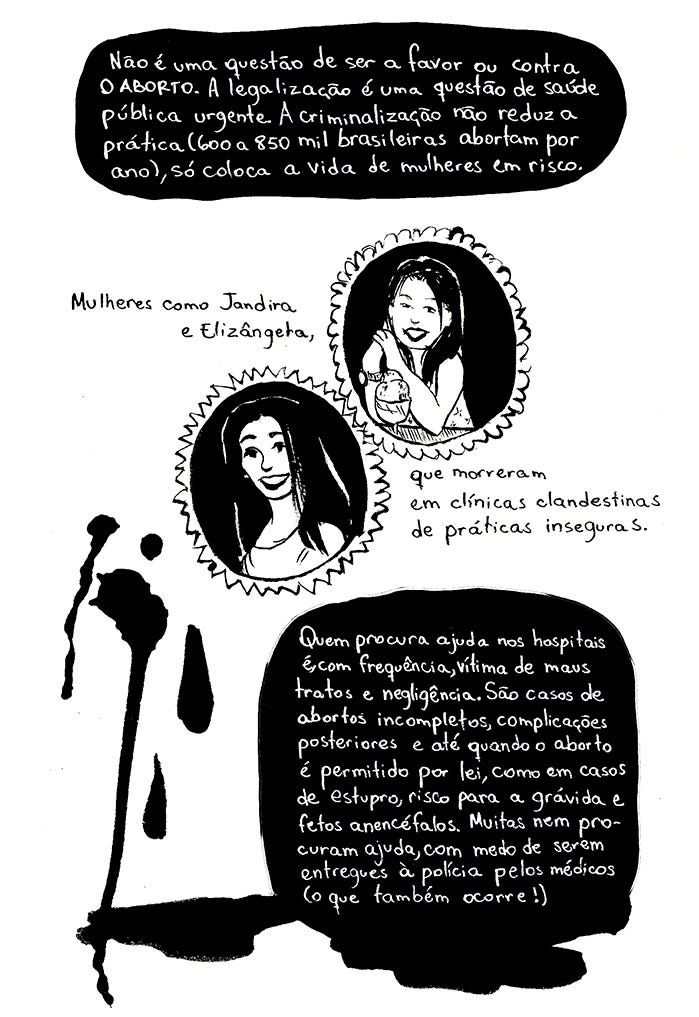 Não é uma questão de ser a favor ou contra
O ABORTO. A legalização é uma questão de saúde
pública urgente. A criminalização não reduz a
prática (600 a 850 mil brasileiras abortam por
ano), só coloca a vida de mulheres em risco.
Mulheres como Jandira
e Elizângela,
que morreram
em clínicas clandestinas
de práticas inseguras.
Quem procura ajuda nos hospitais
é, com frequência, vítima de maus
tratos e negligência. São casos de
abortos incompletos, complicações
posteriores e até quando o aborto
é permitido por lei, como em casos
de estupro, risco para a grávida e
fetos anencéfalos. Muitas nem pro-
curam ajuda, com medo de serem
entregues à polícia pelos médicos
(o que também ocorre!)